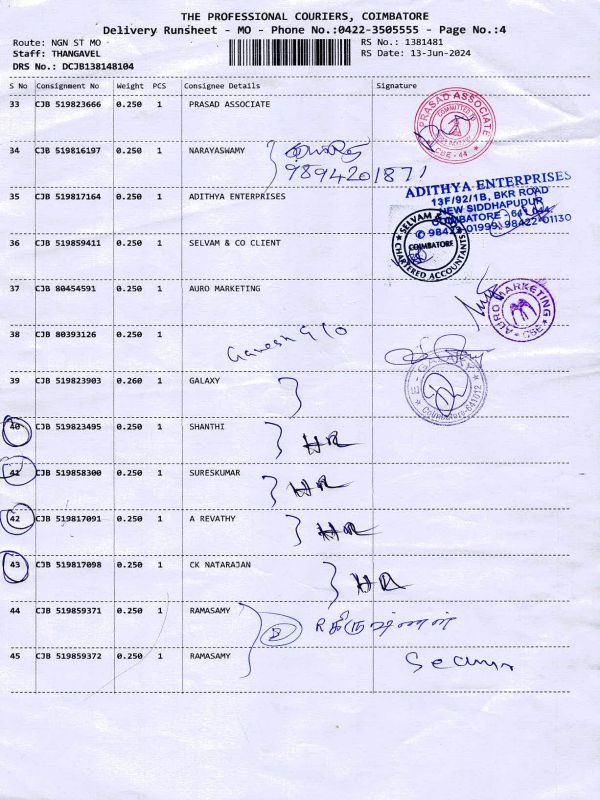 THE PROFESSIONAL COURIERS, COIMBATORE
Delivery Runsheet - MO - Phone No.:0422-3505555 - Page No.:4
Route: NGN ST MO
RS No.: 1381481
Staff: THANGAVEL
RS Date: 13-Jun-2024
DRS No.: DCJB138148104
S No Consignment No Weight PCS Consignee Details Signature
33 CJB 519823666 0.250 1 PRASAD ASSOCIATE
PRASAD ASSOCIATE
CBE - 44
34 CJB 519816197 0.250 1 NARAYASWAMY
9894201871
35 CJB 519817164 0.250 1 ADITHYA ENTERPRISES
ADITHYA ENTERPRISES
13F/92/1B, BKR ROAD
NEW SIDDHAPUDUR
COIMBATORE - 641 044.
98422-01999, 98422-01130
36 CJB 519859411 0.250 1 SELVAM & CO CLIENT
SELVAM &
COIMBATORE
CHARTERED ACCOUNTANTS
37 CJB 80454591 0.250 1 AURO MARKETING
AURO MARKETING
CBE
38 CJB 80393126 0.250 1
Ganesh
39 CJB 519823903 0.260 1 GALAXY
GALAXY
COIMBATORE-641012
40 CJB 519823495 0.250 1 SHANTHI
HR
41 CJB 519858300 0.250 1 SURESKUMAR
HR
42 CJB 519817091 0.250 1 A REVATHY
HR
43 CJB 519817098 0.250 1 CK NATARAJAN
HR
44 CJB 519859371 0.250 1 RAMASAMY
2
45 CJB 519859372 0.250 1 RAMASAMY